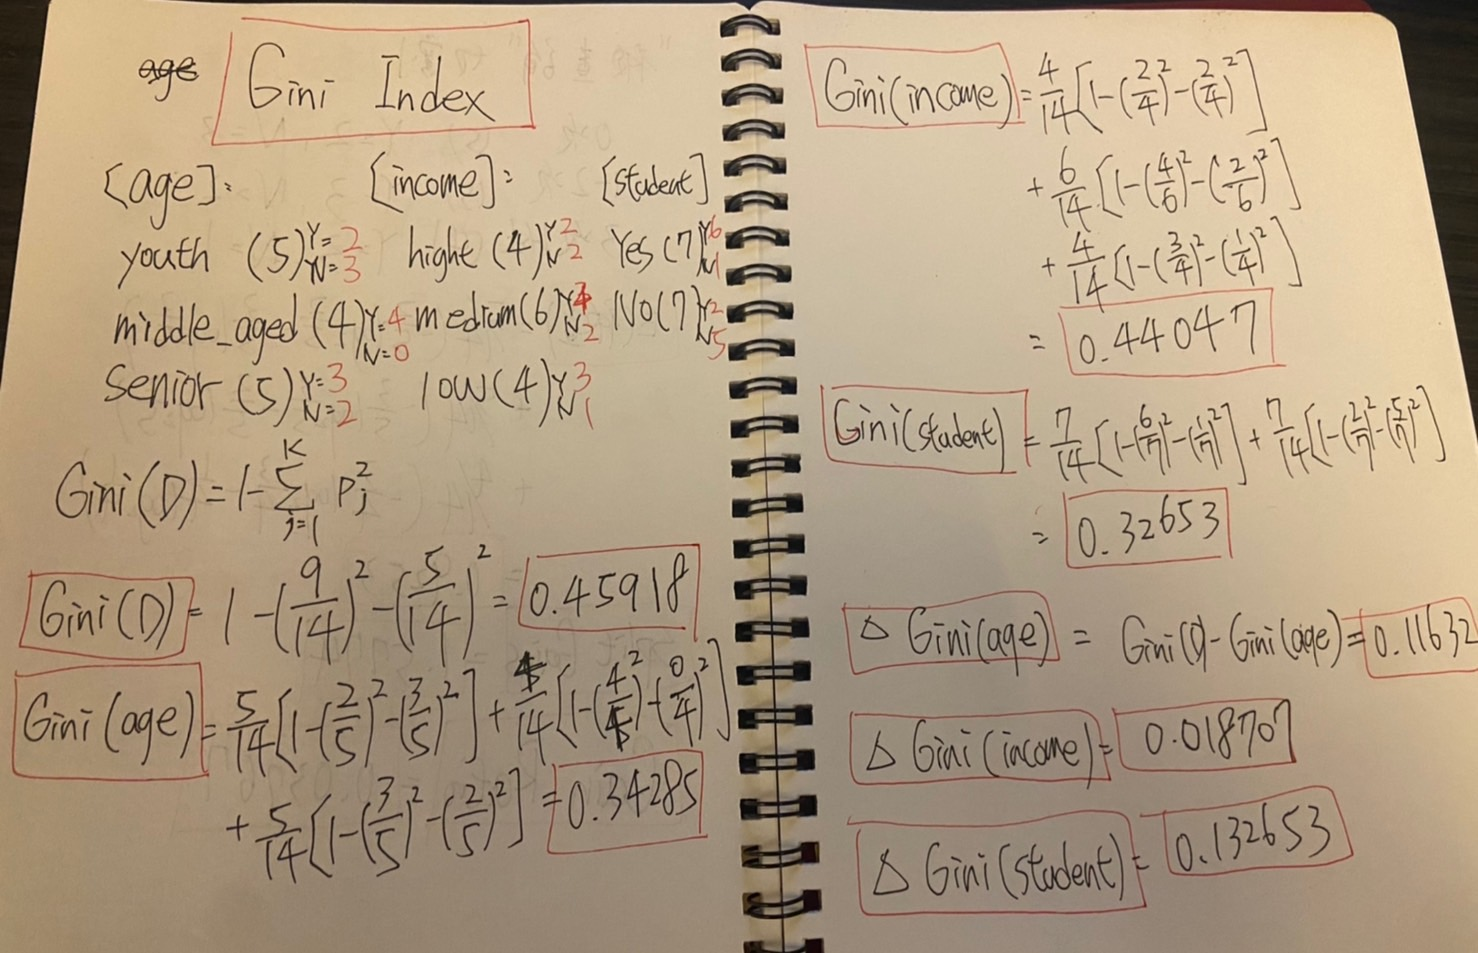 age
Gini Index
[age]: [income]: [student]
youth (5) Y=2 N=3 hight (4) Y 2 N 2 Yes (7) Y 6 N 1
middle_aged (4) Y=4 N=0 medium (6) Y 4 N 2 No (7) Y 2 N 5
Senior (5) Y=3 N=2 low (4) Y 3 N 1
Gini(D) = 1 - Σ_{j=1}^{K} P_j^2
Gini(D) = 1 - (9/14)^2 - (5/14)^2 = 0.45918
Gini(age) = 5/14 [1-(2/5)^2-(3/5)^2] + 4/14 [1-(4/4)^2-(0/4)^2]
+ 5/14 [1-(3/5)^2-(2/5)^2] = 0.34285
Gini(income) = 4/14 [1-(2/4)^2-(2/4)^2]
+ 6/14 [1-(4/6)^2-(2/6)^2]
+ 4/14 [1-(3/4)^2-(1/4)^2]
= 0.44047
Gini(student) = 7/14 [1-(6/7)^2-(1/7)^2] + 7/14 [1-(2/7)^2-(5/7)^2]
= 0.32653
Δ Gini(age) = Gini(D) - Gini(age) = 0.11632
Δ Gini(income) = 0.018707
Δ Gini(student) = 0.132653